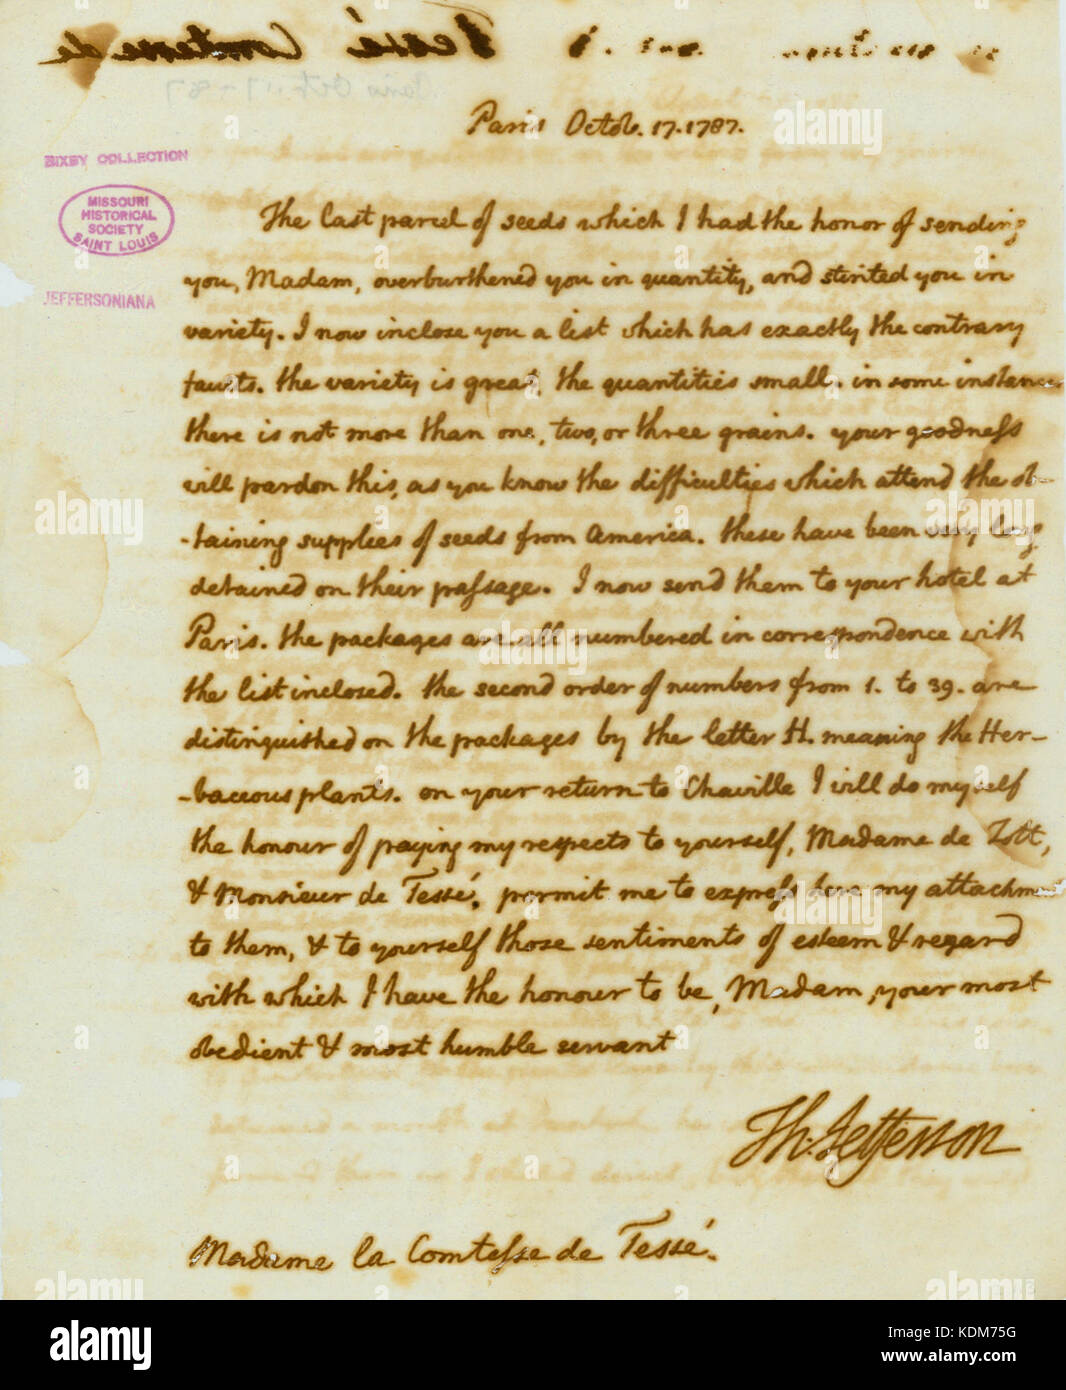 Tessé Comtesse de
Paris Oct. 17-87
Paris Octob. 17. 1787.
BIXBY COLLECTION
MISSOURI
HISTORICAL
SOCIETY
SAINT LOUIS
JEFFERSONIANA
The last parcel of seeds which I had the honor of sending
you, Madam, overburthened you in quantity, and stinted you in
variety. I now inclose you a list which has exactly the contrary
faults. the variety is great, the quantities small. in some instances
there is not more than one, two, or three grains. your goodness
will pardon this, as you know the difficulties which attend the ob-
-taining supplies of seeds from America. these have been very long
detained on their passage. I now send them to your hotel at
Paris. the packages are all numbered in correspondence with
the list inclosed. the second order of numbers from 1. to 39. are
distinguished on the packages by the letter H. meaning the Her-
-baceous plants. on your return to Chaville I will do myself
the honour of paying my respects to yourself, Madame de Tott,
& Monsieur de Tessé. permit me to express here my attachm
to them, & to yourself those sentiments of esteem & regard
with which I have the honour to be, Madam, your most
obedient & most humble servant
Th: Jefferson
Madame la Comtesse de Tessé.
alamy stock photo
alamy
Image ID: KDM75G
www.alamy.com